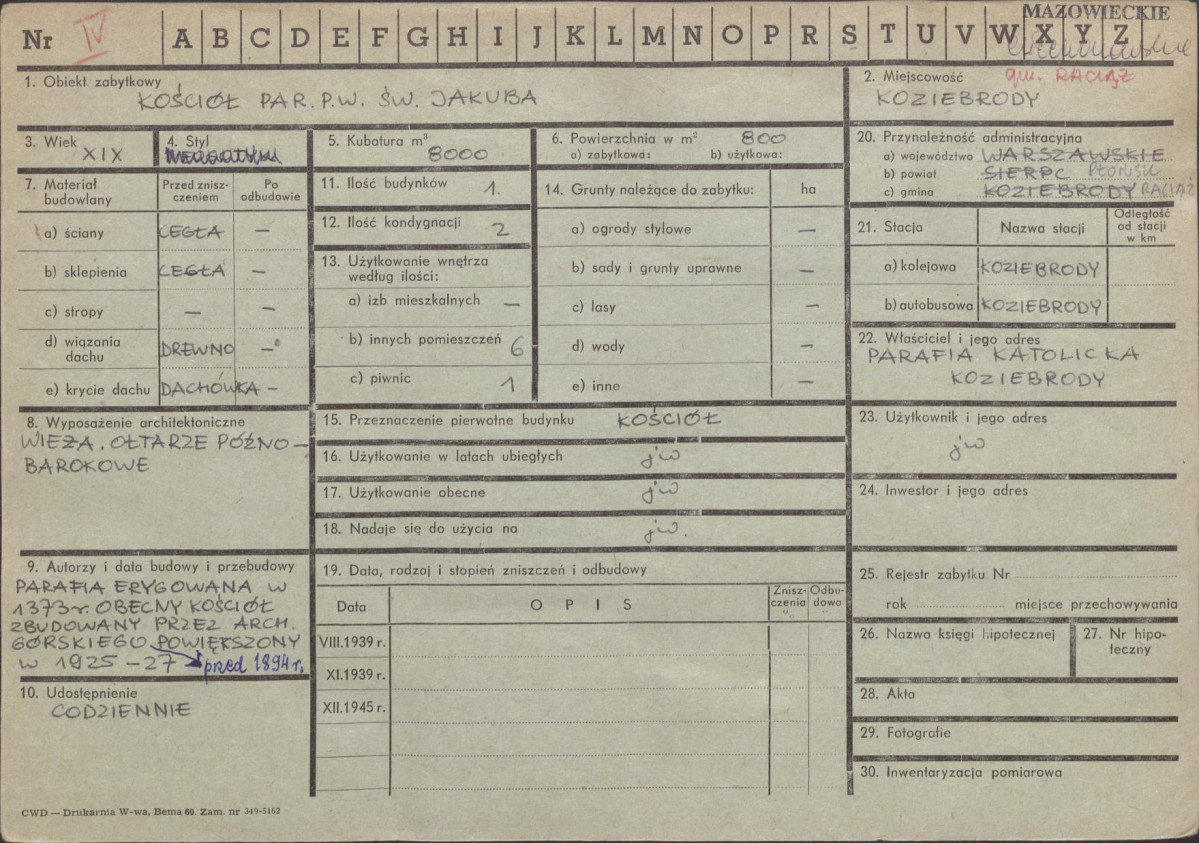 Nr IV A B C D E F G H I J K L M N O P R S T U V W X Y Z
MAZOWIECKIE
1. Obiekt zabytkowy
KOŚCIÓŁ PAR. P.W. ŚW. JAKUBA
2. Miejscowość gm. RACIĄŻ
KOZIEBRODY
3. Wiek
XIX
4. Styl
5. Kubatura m³
8000
6. Powierzchnia w m² 800
a) zabytkowa: b) użytkowa:
20. Przynależność administracyjna
a) województwo WARSZAWSKIE
b) powiat SIERPC PŁOŃSK
c) gmina KOZIEBRODY RACIĄŻ
7. Materiał
budowlany
Przed znisz-
czeniem
Po
odbudowie
a) ściany CEGŁA —
b) sklepienia CEGŁA —
c) stropy — —
d) wiązania
dachu DREWNO —
e) krycie dachu DACHÓWKA —
11. Ilość budynków 1.
12. Ilość kondygnacji 2
13. Użytkowanie wnętrza
według ilości:
a) izb mieszkalnych —
b) innych pomieszczeń 6
c) piwnic 1
14. Grunty należące do zabytku: ha
a) ogrody stylowe —
b) sady i grunty uprawne —
c) lasy —
d) wody —
e) inne —
21. Stacja Nazwa stacji
Odległość
od stacji
w km
a) kolejowa KOZIEBRODY
b) autobusowa KOZIEBRODY
22. Właściciel i jego adres
PARAFIA KATOLICKA
KOZIEBRODY
8. Wyposażenie architektoniczne
WIEŻA. OŁTARZE PÓŹNO-
BAROKOWE
15. Przeznaczenie pierwotne budynku KOŚCIÓŁ
16. Użytkowanie w latach ubiegłych jw
17. Użytkowanie obecne jw
18. Nadaje się do użycia na jw.
23. Użytkownik i jego adres
jw
24. Inwestor i jego adres
9. Autorzy i data budowy i przebudowy
PARAFIA ERYGOWANA W
1373 r. OBECNY KOŚCIÓŁ
ZBUDOWANY PRZEZ ARCH.
GÓRSKIEGO POWIĘKSZONY
W 1925 - 27 przed 1894 r.
10. Udostępnienie
CODZIENNIE
19. Data, rodzaj i stopień zniszczeń i odbudowy
Data OPIS
Znisz-
czenia
%
Odbu-
dowa
VIII.1939 r.
XI.1939 r.
XII.1945 r.
25. Rejestr zabytku Nr
rok miejsce przechowywania
26. Nazwa księgi hipotecznej
27. Nr hipo-
teczny
28. Akta
29. Fotografie
30. Inwentaryzacja pomiarowa
CWD — Drukarnia W-wa, Bema 60. Zam. nr 349-5162